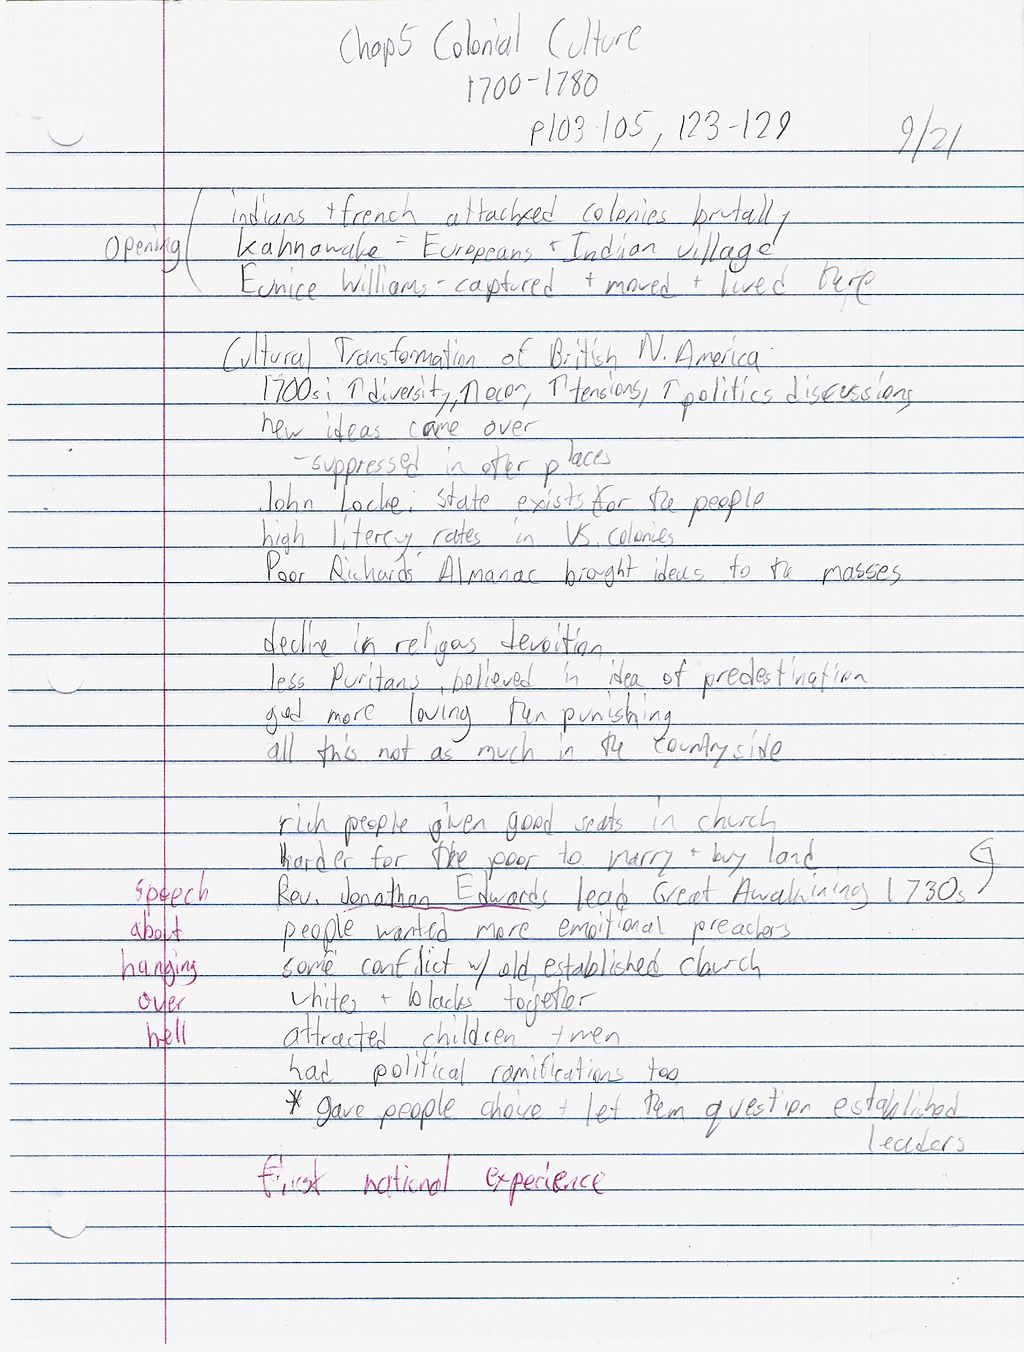 Chap5 Colonial Culture
1700-1780
p103-105, 123-129
9/21
indians + french attacked colonies brutally
opening
Kahnawake = Europeans + Indian village
Eunice Williams - captured + moved + lived there
Cultural Transformation of British N. America
1700s: ↑diversity, ↑econ, ↑tensions, ↑politics discussions
new ideas came over
-suppressed in other places
John Locke: state exists for the people
high litercy rates in US. colonies
Poor Richards Almanac brought ideas to the masses
decline in religas devoition
less Puritans, believed in idea of predestination
god more loving then punishing
all this not as much in the countryside
rich people given good seats in church
harder for the poor to marry + buy land
Rev. Jonathan Edwards lead Great Awakining 1730s
people wanted more emoitional preachers
some conflict w/ old, established church
whites + blacks together
attracted children + men
had political ramifications too
* gave people choice + let them question established
leaders
speech
about
hanging
over
hell
first national experience